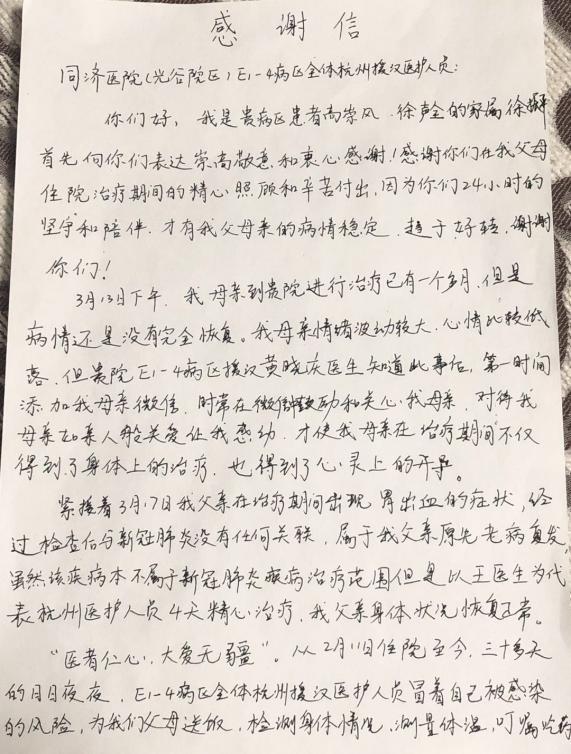 感谢信
同济医院(光谷院区)E1-4病区全体杭州援汉医护人员:
你们好,我是贵病区患者高崇风、徐声全的家属徐
首先向你们表达崇高敬意和衷心感谢!感谢你们在我父母
住院治疗期间的精心照顾和辛苦付出,因为你们24小时的
坚守和陪伴.才有我父母亲的病情稳定、趋于好转,谢谢
你们!
3月13日下午,我母亲到贵院进行治疗已有一个多月,但是
病情还是没有完全恢复。我母亲情绪波动较大、心情比较低
落.但贵院E1-4病区援汉黄晓庆医生知道此事后,第一时间
添加我母亲微信.时常在微信鼓励和关心我母亲,对待我
母亲如亲人般关爱让我感动.才使我母亲在治疗期间不仅
得到了身体上的治疗.也得到了心灵上的开导。
紧接着3月17日我父亲在治疗期间出现胃出血的症状,经
过检查后与新冠肺炎没有任何关联,属于我父亲原先老病复发,
虽然该疾病本不属于新冠肺炎疾病治疗范围但是以王医生为代
表杭州医护人员4天精心治疗.我父亲身体状况恢复正常。
“医者仁心,大爱无疆”。从2月11日住院至今,三十多天
的日日夜夜,E1-4病区全体杭州援汉医护人员冒着自己被感染
的风险,为我们父母送饭,检测身体情况,测量体温,叮嘱吃药